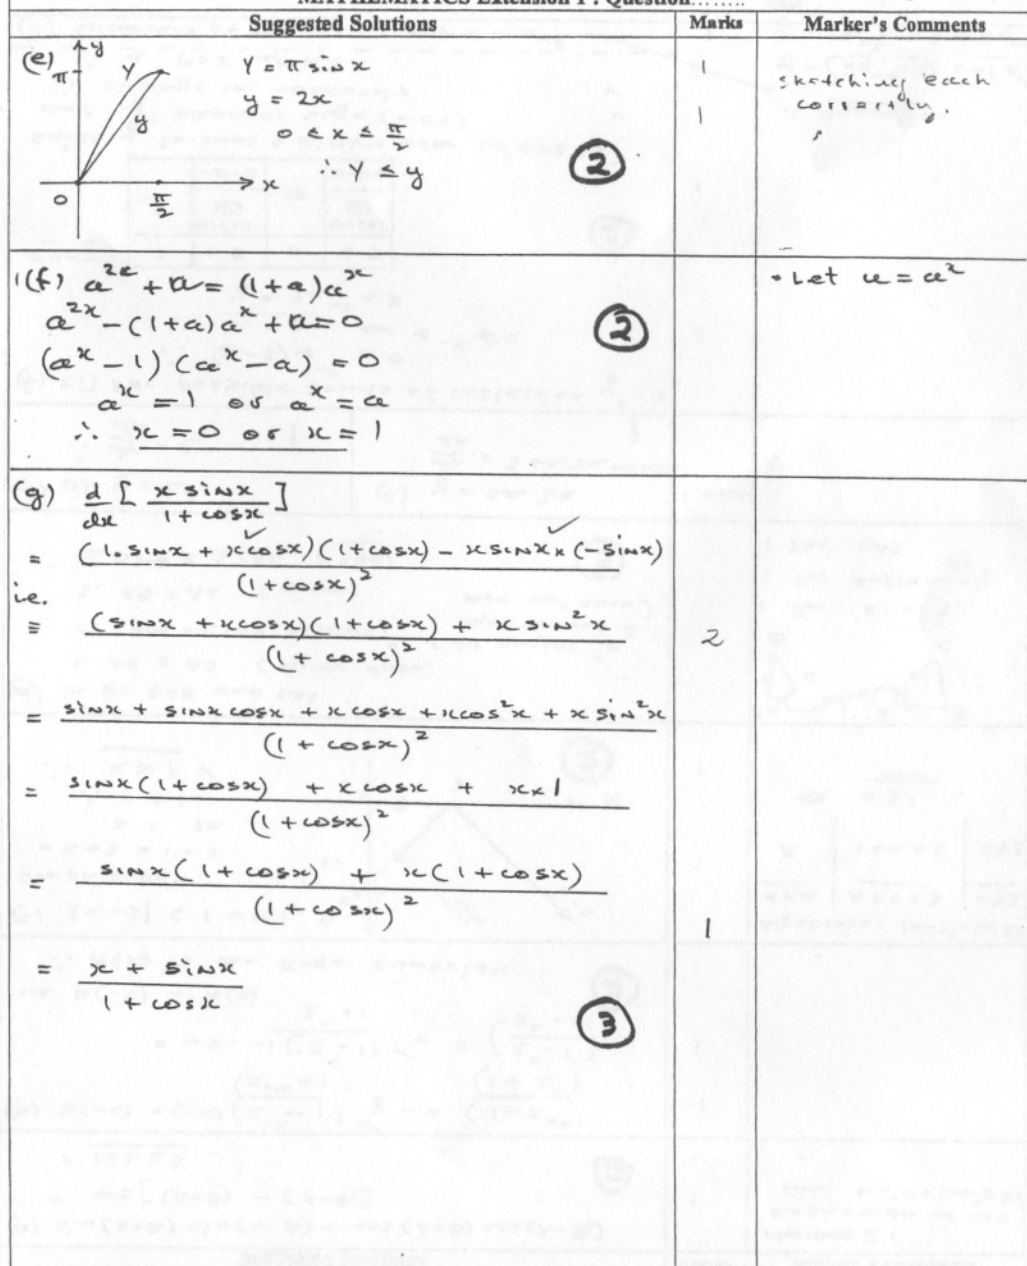 MATHEMATICS Extension 1 : Question.........
Suggested Solutions
Marks
Marker's Comments
(e)
y
π
Y
y
0
π/2
x
Y = π sin x
y = 2x
0 ≤ x ≤ π/2
∴ Y ≤ y
②
1
1
sketching each
correctly.
1(f) a^{2x} + a = (1+a)a^x
a^{2x} - (1+a)a^x + a = 0
(a^x - 1)(a^x - a) = 0
a^x = 1 or a^x = a
∴ x = 0 or x = 1
②
• Let u = a^2
(g) d/dx [ x sin x / 1 + cos x ]
= (1. sin x + x cos x)(1 + cos x) - x sin x × (-sin x) / (1 + cos x)^2
i.e.
≡ (sin x + x cos x)(1 + cos x) + x sin^2 x / (1 + cos x)^2
2
= sin x + sin x cos x + x cos x + x cos^2 x + x sin^2 x / (1 + cos x)^2
= sin x (1 + cos x) + x cos x + x × 1 / (1 + cos x)^2
= sin x (1 + cos x) + x (1 + cos x) / (1 + cos x)^2
1
= x + sin x / 1 + cos x
③